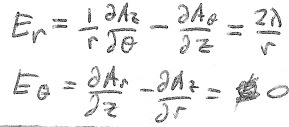 E_r = \frac{1}{r} \frac{\partial A_z}{\partial \theta} - \frac{\partial A_\theta}{\partial z} = \frac{2\lambda}{r}
E_\theta = \frac{\partial A_r}{\partial z} - \frac{\partial A_z}{\partial r} = 0